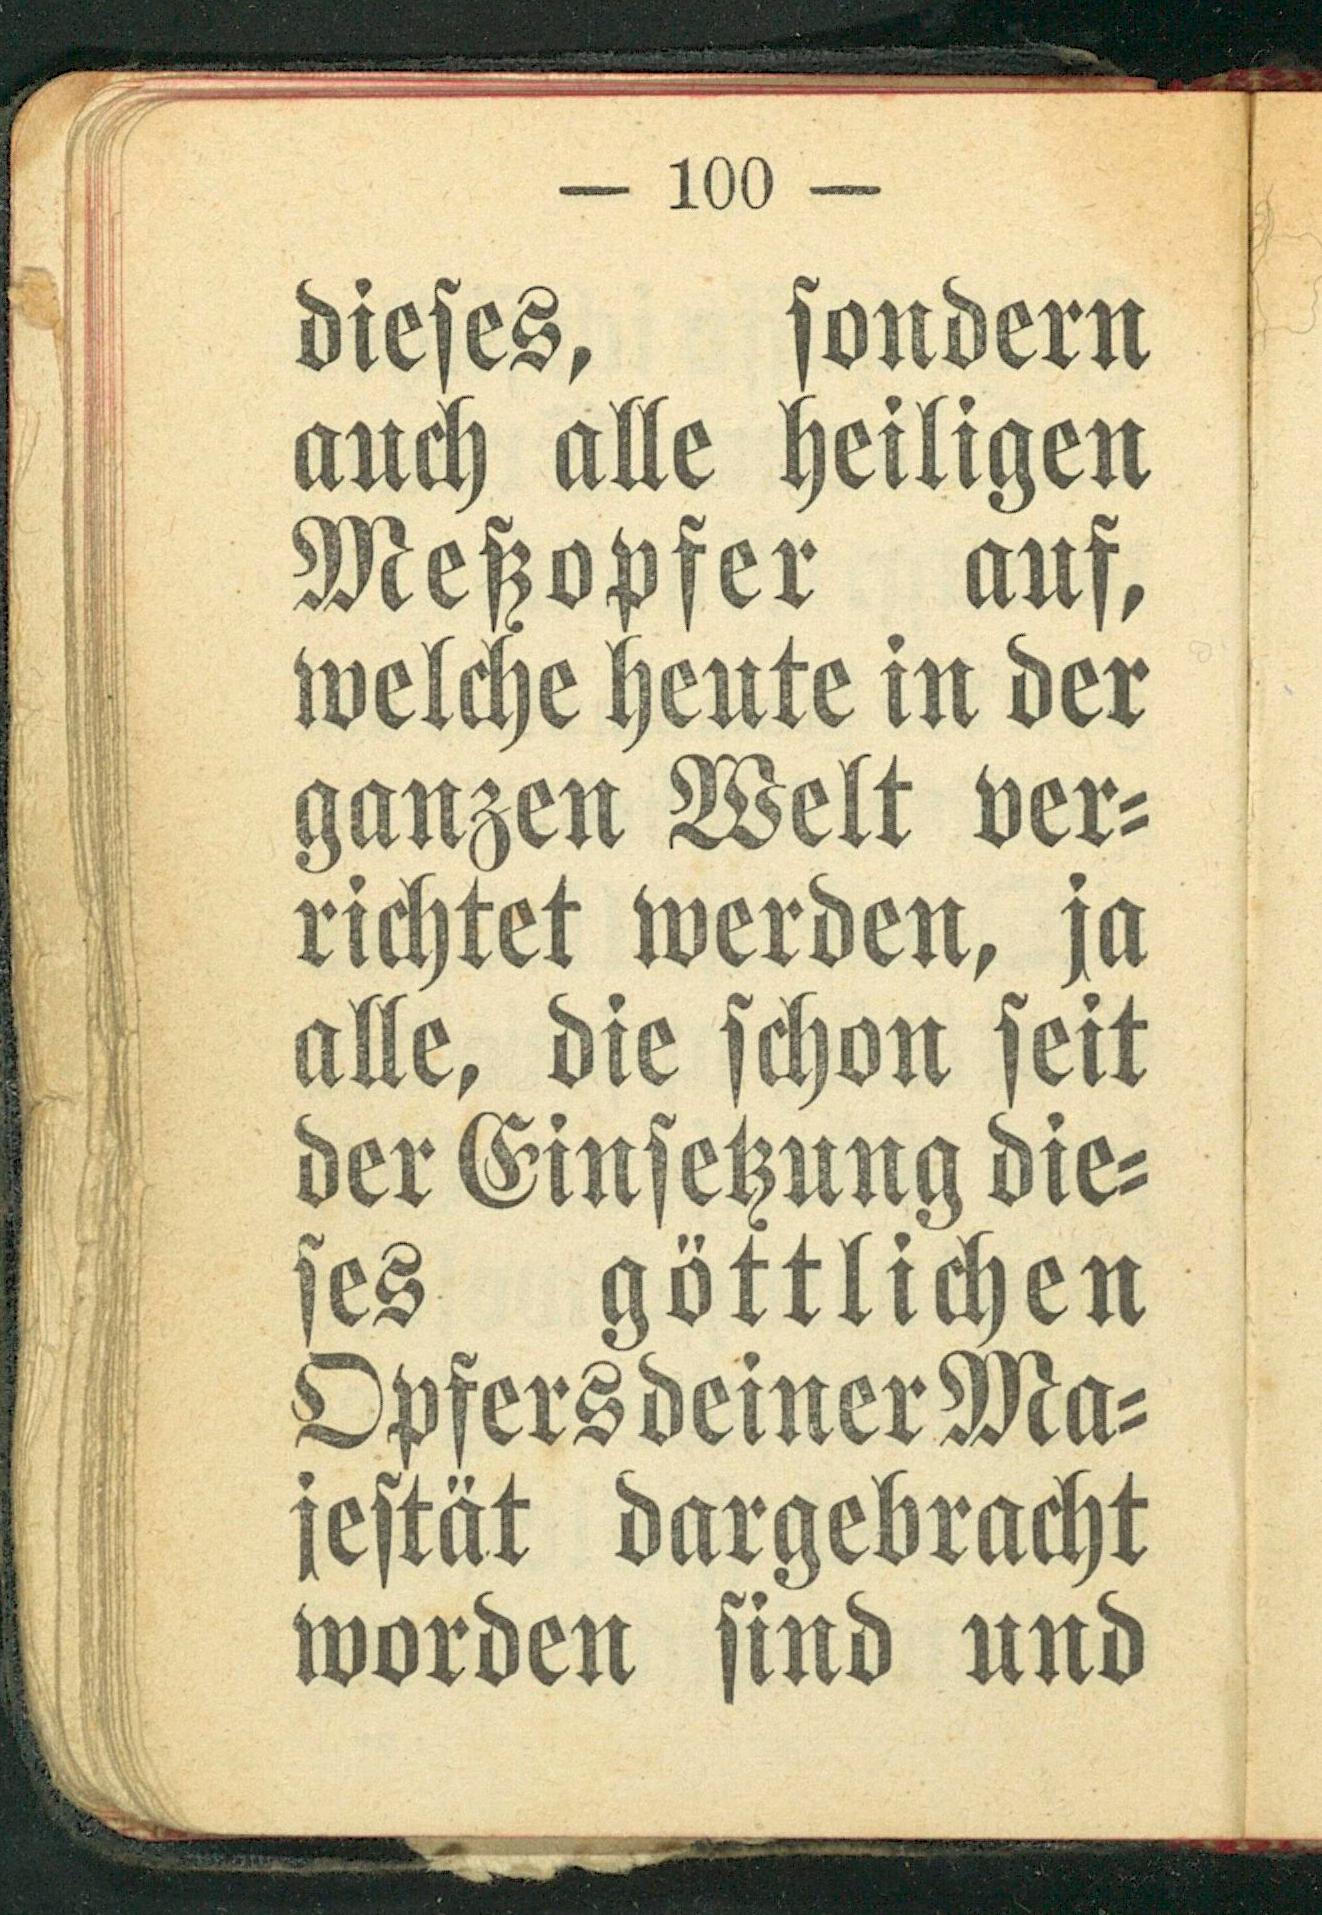 — 100 —
dieses, sondern
auch alle heiligen
Meßopfer auf,
welche heute in der
ganzen Welt ver-
richtet werden, ja
alle, die schon seit
der Einsetzung die-
ses göttlichen
Opfers deiner Ma-
jestät dargebracht
worden sind und